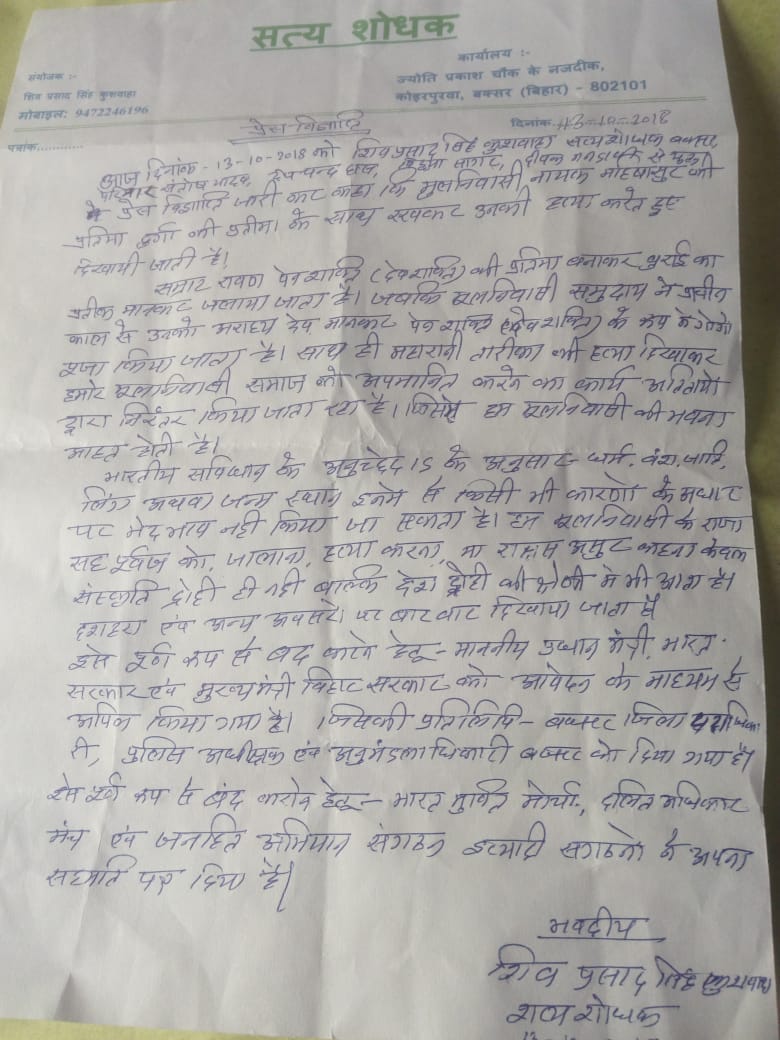 सत्य शोधक
संयोजक :-
शिव प्रसाद सिंह कुशवाहा
मोबाइल: 9472246196
कार्यालय :-
ज्योति प्रकाश चौक के नजदीक,
कोइरपुरवा, बक्सर (बिहार) - 802101
पत्रांक............
दिनांक 13-10-2018
प्रेस-विज्ञप्ति
आज दिनांक - 13-10-2018 को शिव प्रसाद सिंह कुशवाहा सत्य शोधक बक्सर,
परिवार संतोष यादव,
प्रेस विज्ञप्ति जारी कर कहा कि मुलनिवासी नायक महिषासुर की
प्रतिमा दुर्गा की प्रतीमा के साथ रखकर उनकी हत्या करते हुए
दिखायी जाती है।
सम्राट रावण पेनशक्ति (देवशक्ति) की प्रतिमा बनाकर बुराई का
प्रतीक मानकर जलाया जाता है। जबकि मूलनिवासी समुदाय में प्राचीन
काल से उनको अराध्य देव मानकर पेन शक्ति (देवशक्ति) के रूप में
पूजा किया जाता है। साथ ही महारानी तारीका की हत्या दिखाकर
हमारे मूलनिवासी समाज को अपमानित करने का कार्य
द्वारा निरंतर किया जाता रहा है। जिससे हम मूलनिवासी की भावना
आहत होती है।
भारतीय संविधान के अनुच्छेद 15 के अनुसार धर्म, वंश, जाति,
लिंग अथवा जन्म स्थान इनमें से किसी भी कारणों के अधार
पर भेद भाव नहीं किया जा सकता है। हम मूलनिवासी के राजा
सह पूर्वज को, जालाना, हत्या करना, या राक्षस असुर कहना केवल
संस्कृति द्रोही ही नहीं बल्कि देश द्रोही की श्रेणी में भी आता है।
दशहरा एवं अन्य अवसरों पर बार बार दिखाया जाता है
इसे पूर्ण रूप से बंद कराने हेतू - माननीय प्रधान मंत्री, भारत
सरकार एवं मुख्यमंत्री बिहार सरकार को आवेदन के माध्यम से
अपिल किया गया है। जिसकी प्रतिलिपि - बक्सर जिला पदाधिका
री, पुलिस अधीक्षक एवं अनुमंडलाधिकारी बक्सर को दिया गया है।
इसे पूर्ण रूप से बंद कराने हेतू - भारत मुक्ति मोर्चा, दलित अधिकार
मंच एवं जनहित अभियान संगठन इत्यादी संगठनो ने अपना
सहमति पत्र दिया है।
भवदीय
शिव प्रसाद सिंह कुशवाहा
सत्य शोधक